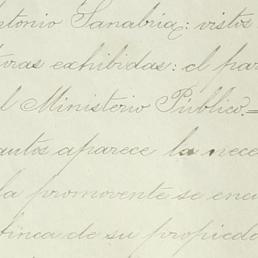 tonio Sanabria: vistos
uras exhibidas: el par
l Ministerio Público.=
autos aparece la nece
la promovente se encu
finca de su propieda